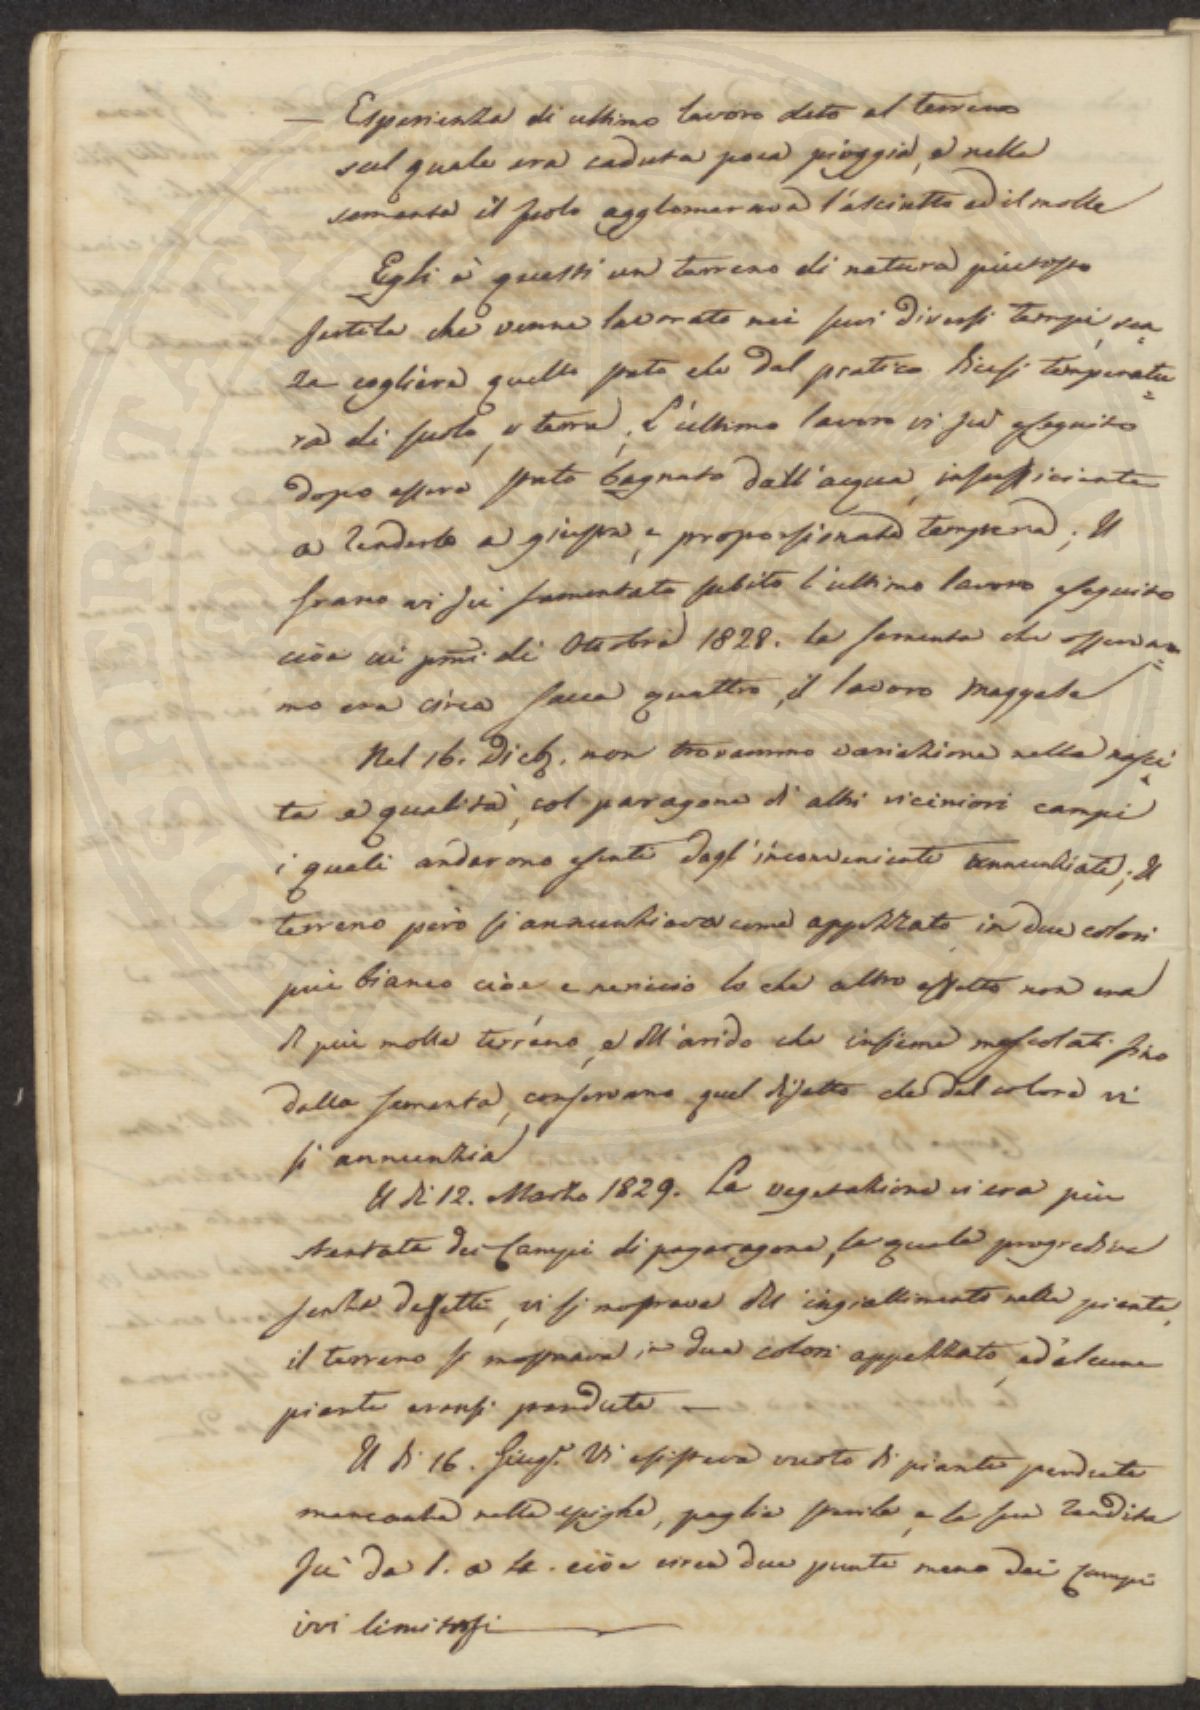 — Esperienza di ultimo lavoro dato al terreno
sul quale era caduta poca pioggia, e nella
sementa il suolo agglomerava l'asciutto ed il molle
Egli è questi un terreno di natura piuttosto
fertile che venne lavorato nei suoi diversi tempi, sen
za cogliere quello stato che dal pratico dicesi temperatu
ra di suolo, o terra, L'ultimo lavoro vi fù eseguito
dopo essere stato bagnato dall'acqua insufficiente
a renderlo a giusta, e proporsionata tempera; Il
grano vi fù sementato subito l'ultimo lavoro eseguito
cioè ai pmi di Ottobre 1828. la sementa che osservam
mo era circa sacca quattro, il lavoro maggese
Nel 16. Dicb. non trovammo variazione nella nasci
ta e qualità, col paragone di altri viciniori campi
i quali andarono esenti dagl'inconveniente annunziate; Il
terreno però si annunziava come appezzato in due colori
più bianco cioè e nericcio lo che altro effetto non era
di più molle terreno, e dell'arido che insieme mescolati fino
dalla sementa, conservano quel difetto che dal colore vi
si annunzia
Il di 12. Marzo 1829. La vegetazione vi era più
stentata dei Campi di pagaragone, la quale progrediva
senza deffetti, vi si mostrava dell'ingiallimento nelle piante,
il terreno si mostrava in due colori appezzato, ed alcune
piante eransi perdute —
Il di 16. Giugº. Vi esisteva vuoto di piante perdute
mancanza nelle spighe, paglia sterile, e la sua rendita
fù da 1. a 4. cioè circa due punte meno dei Campi
ivi limitrofi